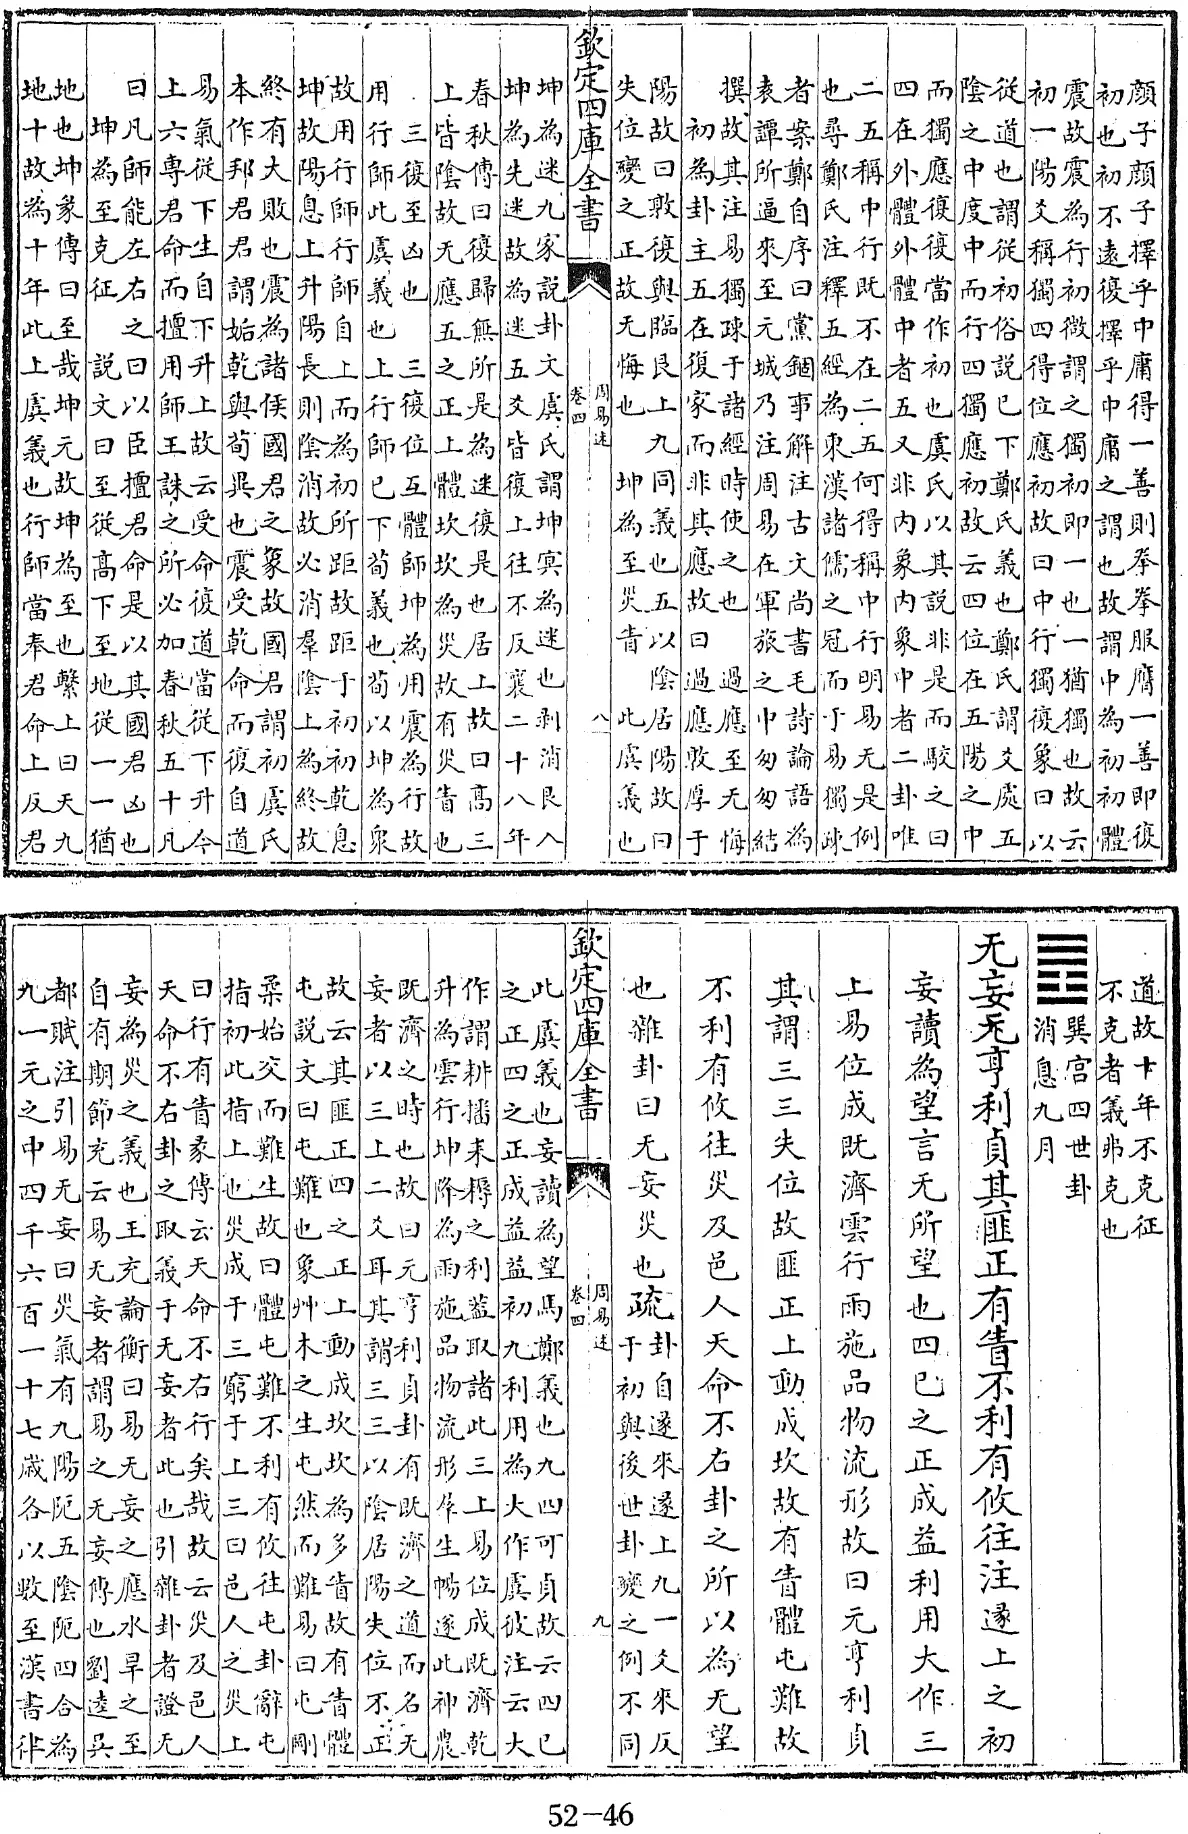 顔子顔子擇乎中庸得一善則拳拳服膺一善即復
初也初不遠復擇乎中庸之謂也故謂中為初初體
震故震為行初微謂之獨初即一也一猶獨也故云
初一陽爻稱獨四得位應初故曰中行獨復象曰以
從道也謂從初俗說已下鄭氏義也鄭氏謂爻處五
陰之中度中而行四獨應初故云四位在五陽之中
而獨應復當作初也虞氏以其說非是而駮之曰
四在外體外體中者五又非内象内象中者二卦唯
二五稱中行既不在二五何得稱中行明易无是例
也尋鄭氏注釋五經為東漢諸儒之冠而于易獨疎
者案鄭自序曰黨錮事解注古文尚書毛詩論語為
袁譚所逼來至元城乃注周易在軍旅之中匆匆結
撰故其注易獨疎于諸經時使之也 過應至无悔
初為卦主五在復家而非其應故曰過應敦厚于
陽故曰敦復與臨艮上九同義也五以陰居陽故曰
失位變之正故无悔也 坤為至災眚 此虞義也
欽定四庫全書
周易述
卷四
八
坤為迷九家說卦文虞氏謂坤冥為迷也剥消艮入
坤為先迷故為迷五爻皆復上往不反襄二十八年
春秋傳曰復歸無所是為迷復是也居上故曰高三
上皆陰故无應五之正上體坎坎為災故有災眚也
三復至凶也 三復位互體師坤為用震為行故
用行師此虞義也 上行師已下荀義也荀以坤為衆
故用行師行師自上而為初所距故距于初初乾息
坤故陽息上升陽長則陰消故必消羣陰上為終故
終有大敗也震為諸侯國君之象故國君謂初虞氏
本作邦君君謂姤乾與荀異也震受乾命而復自道
易氣從下生自下升上故云受命復道當從下升今
上六專君命而擅用師王誅之所必加春秋五十凡
曰凡師能左右之曰以臣擅君命是以其國君凶也
坤為至克征 說文曰至從高下至地從一一猶
地也坤彖傳曰至哉坤元故坤為至也繫上曰天九
地十故為十年此上虞義也行師當奉君命上反君
道故十年不克征
不克者義弗克也
巽宫四世卦
消息九月
无妄元亨利貞其匪正有眚不利有攸往注遯上之初
妄讀為望言无所望也四已之正成益利用大作三
上易位成既濟雲行雨施品物流形故曰元亨利貞
其謂三三失位故匪正上動成坎故有眚體屯難故
不利有攸往災及邑人天命不右卦之所以為无望
也雜卦曰无妄災也疏
卦自遯來遯上九一爻來反
于初與後世卦變之例不同
欽定四庫全書
周易述
卷四
九
此虞義也妄讀為望馬鄭義也九四可貞故云四已
之正四之正成益益初九利用為大作虞彼注云大
作謂耕播耒耨之利蓋取諸此三上易位成既濟乾
升為雲行坤降為雨施品物流形羣生暢遂此神農
既濟之時也故曰元亨利貞卦有既濟之道而名无
妄者以三上二爻耳其謂三三以陰居陽失位不正
故云其匪正四之正上動成坎坎為多眚故有眚體
屯說文曰屯難也象艸木之生屯然而難易曰屯剛
柔始交而難生故曰體屯難不利有攸往屯卦辭屯
指初此指上也災成于三窮于上三曰邑人之災上
曰行有眚彖傳云天命不右行矣哉故云災及邑人
天命不右卦之取義于无妄者此也引雜卦者證无
妄為災之義也王充論衡曰易无妄之應水旱之至
自有期節充云易无妄者謂易之无妄傳也劉逵吳
都賦注引易无妄曰災氣有九陽阨五陰阨四合為
九一元之中四千六百一十七歲各以數至漢書律
52-46